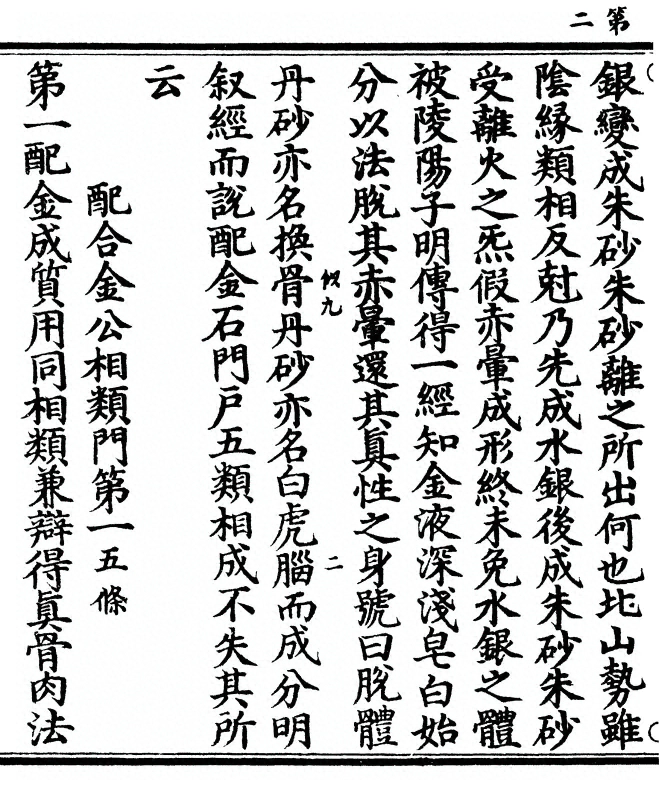 第
二
銀變成朱砂朱砂離之所出何也北山勢雖
陰緣類相反尅乃先成水銀後成朱砂朱砂
受離火之炁假赤暈成形終未免水銀之體
被陵陽子明傳得一經知金液深淺皂白始
分以法脫其赤暈還其眞性之身號曰脫體
似九
二
丹砂亦名換骨丹砂亦名白虎腦而成分明
叙經而說配金石門戶五類相成不失其所
云
配合金公相類門第一五條
第一配金成質用同相類兼辯得眞骨肉法